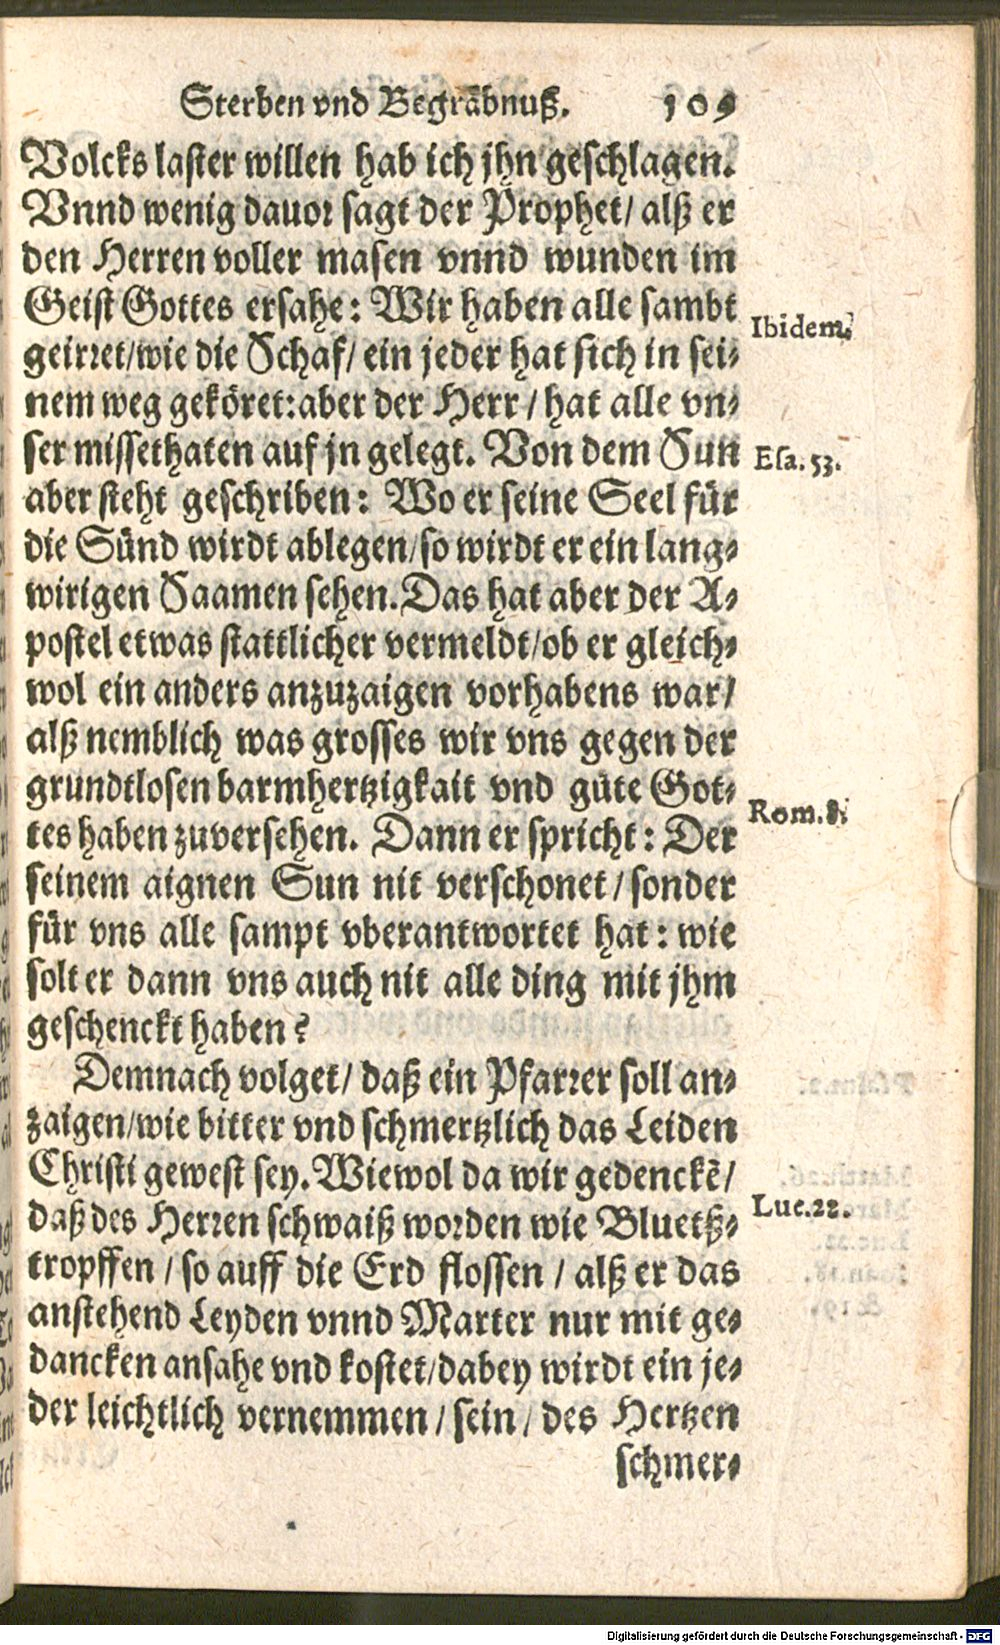 Sterben vnd Begräbnuß. 109
Volcks laster willen hab ich jhn geschlagen.
Vnnd wenig dauor sagt der Prophet/ alß er
den Herren voller masen vnnd wunden im
Geist Gottes ersahe: Wir haben alle sambt
Ibidem.
geirret/wie die Schaf/ ein jeder hat sich in sei-
nem weg geköret: aber der Herr / hat alle vn-
ser missethaten auf jn gelegt. Von dem Sun
Esa. 53.
aber steht geschriben: Wo er seine Seel für
die Sünd wirdt ablegen/so wirdt er ein lang-
wirigen Saamen sehen. Das hat aber der A-
postel etwas stattlicher vermeldt/ob er gleich-
wol ein anders anzuzaigen vorhabens war/
alß nemblich was grosses wir vns gegen der
grundtlosen barmhertzigkait vnd güte Got-
Rom. 8.
tes haben zuversehen. Dann er spricht: Der
seinem aignen Sun nit verschonet / sonder
für vns alle sampt vberantwortet hat: wie
solt er dann vns auch nit alle ding mit jhm
geschenckt haben?
Demnach volget/ daß ein Pfarrer soll an-
zaigen/wie bitter vnd schmertzlich das Leiden
Christi gewest sey. Wiewol da wir gedenckē/
Luc. 22.
daß des Herren schwaiß worden wie Bluetß-
tropffen / so auff die Erd flossen / alß er das
anstehend Leyden vnnd Marter nur mit ge-
dancken ansahe vnd kostet/dabey wirdt ein je-
der leichtlich vernemmen / sein / des Hertzen
schmer-
Digitalisierung gefördert durch die Deutsche Forschungsgemeinschaft - DFG